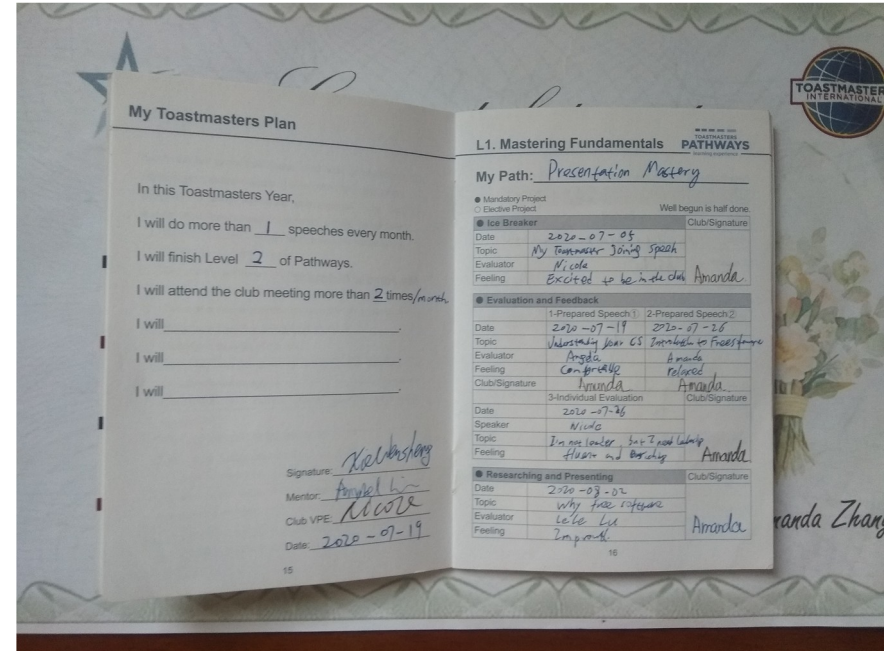 TOASTMASTER
INTERNATIONAL
My Toastmasters Plan
In this Toastmasters Year,
I will do more than 1 speeches every month.
I will finish Level 2 of Pathways.
I will attend the club meeting more than 2 times/month
I will .
I will .
I will .
Signature:
Mentor:
Club VPE: Nicole
Date: 2020-07-19
15
L1. Mastering Fundamentals
TOASTMASTERS
PATHWAYS
learning experience
My Path: Presentation Mastery
Mandatory Project
Elective Project
Well begun is half done.
Ice Breaker Club/Signature
Date 2020-07-05
Topic My Toastmaster Joining Speech
Evaluator Nicole
Feeling Excited to be in the club Amanda
Evaluation and Feedback
1-Prepared Speech① 2-Prepared Speech②
Date 2020-07-19 2020-07-26
Topic Understanding your CS to
Evaluator Angela Amanda
Feeling Comfortable relaxed
Club/Signature Amanda Amanda
3-Individual Evaluation Club/Signature
Date 2020-07-26
Speaker Nicole
Topic I'm not leader, but I need
Feeling fluent and Amanda
Researching and Presenting Club/Signature
Date 2020-08-02
Topic Why free software
Evaluator LeLe Lu
Feeling Amanda
16
anda Zhang